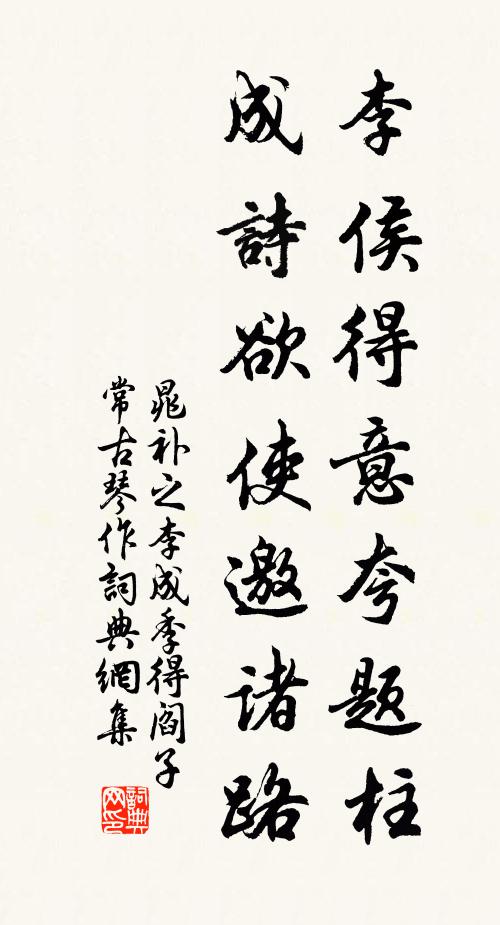 李侯得意夸题柱
成詩欲使邀诸路
晁补之李成季得阎子
常古琴作詞典網集
詞典
网印